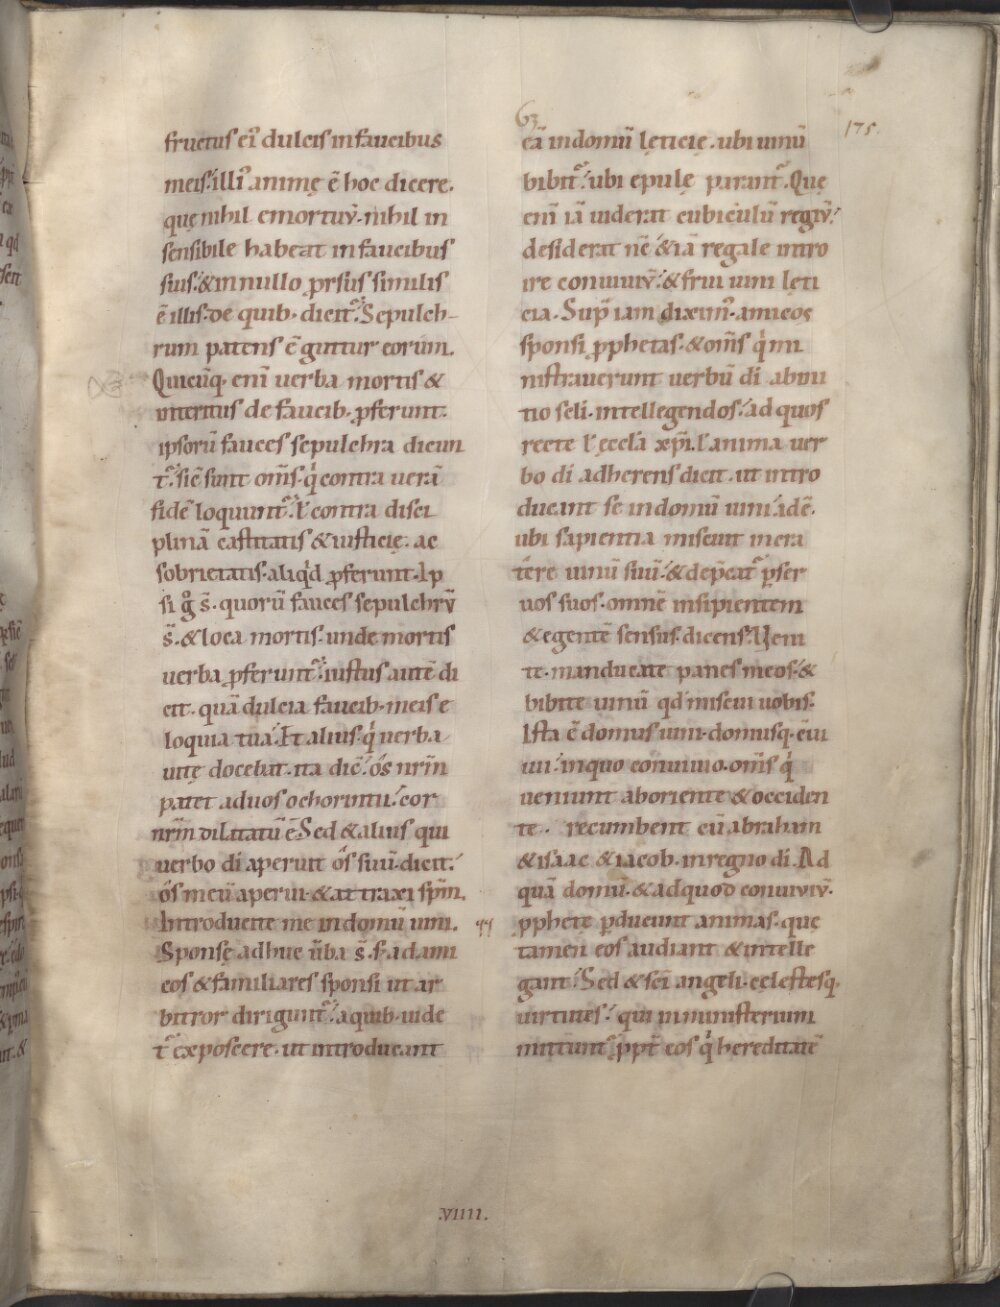 63
175.
fructus ei᷒ dulcis in faucibus
meis. illi᷒ animę ē hoc dicere.
quę nihil emortuv̄. nihil in
sensibile habeat in faucibus
suis. & in nullo ꝓrsus similis
ē illis. de quib· dicit᷑. Sepulch-
rum patens ē guttur eorum.
Quicūq· enī uerba mortis &
interitus de faucib· ꝓferunt.
ipsorū fauces sepulchra dicun
t᷑. sic̄ sunt om̄s. qi contra uerā
fidē loquunt᷑. ł contra disci
plinā castitatis & iusticię. ac
sobrietatis. aliqid ꝓferunt. Ip
si go s̄. quorū fauces sepulchrv̄
s̄. & loca mortis. unde mortis
uerba ꝓferunt᷑. iustus autē di
cit. quā dulcia faucib· meis e
loquia tua. Et alius. qi uerba
uitę docebat. ita dic̄. ós nr̄m
patet ad uos o chorinthii. cor
nr̄m dilatatū ē. Sed & alius qui
uerbo di aperuit ós suū. dicit.
ós meū aperui. & attraxi spm̄.
Introducite me in domū uini.
Sponsę adhuc ūba s̄. s; ad ami
cos & familiares sponsi ut ar
bitror dirigunt᷑. a quib· uide
t᷑ exposcere. ut introducant
cā in domū lęticię. ubi uinū
bibit᷑. ubi epulę parant᷑. Quę
enī iā uiderat cubiculū regiv̄.
desiderat nc̄ & iā regale intro
ire conuiuiv̄. & frui uini lęti
cia. Sup̄ iam diximᵒ. amicos
sponsi ꝓphetas. & om̄s qi mi
nistrauerunt uerbū di ab ini
tio scli. intellegendos. ad quos
recte ł ęccła xp̄i. ł anima uer
bo di adherens dicit. ut intro
ducant se in domū uini. idē.
ubi sapientia miscuit in cra
tere uinū suū. & dep̄cat᷑ ꝑ ser
uos suos. omnē insipientem
& egentē sensus. dicens. Veni
te. manducate panes meos. &
bibite uinū qd miscui uobis.
Ista ē domus uini. domusq· cōui
uii. in quo conuiuio. om̄s qi
ueniunt ab oriente & occiden
te. recumbent cū abraham
& isaac & iacob. in regno di. Ad
quā domū. & ad quod conuiviv̄.
ꝓphetę ꝑducunt animas. quę
tamen eos audiant & intelle
gant. Sed & sci angeli. cęlestesq·
uirtutes. qui in ministerium
mittunt᷑ ꝓpt̄ eos qi hereditatē
.VIIII.